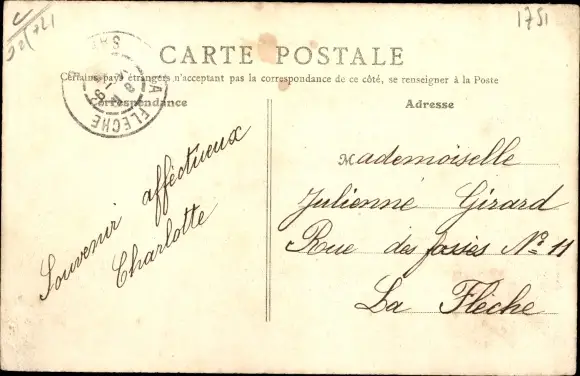 1751
CARTE POSTALE
Certains pays étrangers n'acceptant pas la correspondance de ce côté, se renseigner à la Poste
Correspondance
Adresse
LA FLECHE
Souvenir afféctueux
Charlotte
Mademoiselle
Julienne Girard
Rue des fossés No 11
La Flèche